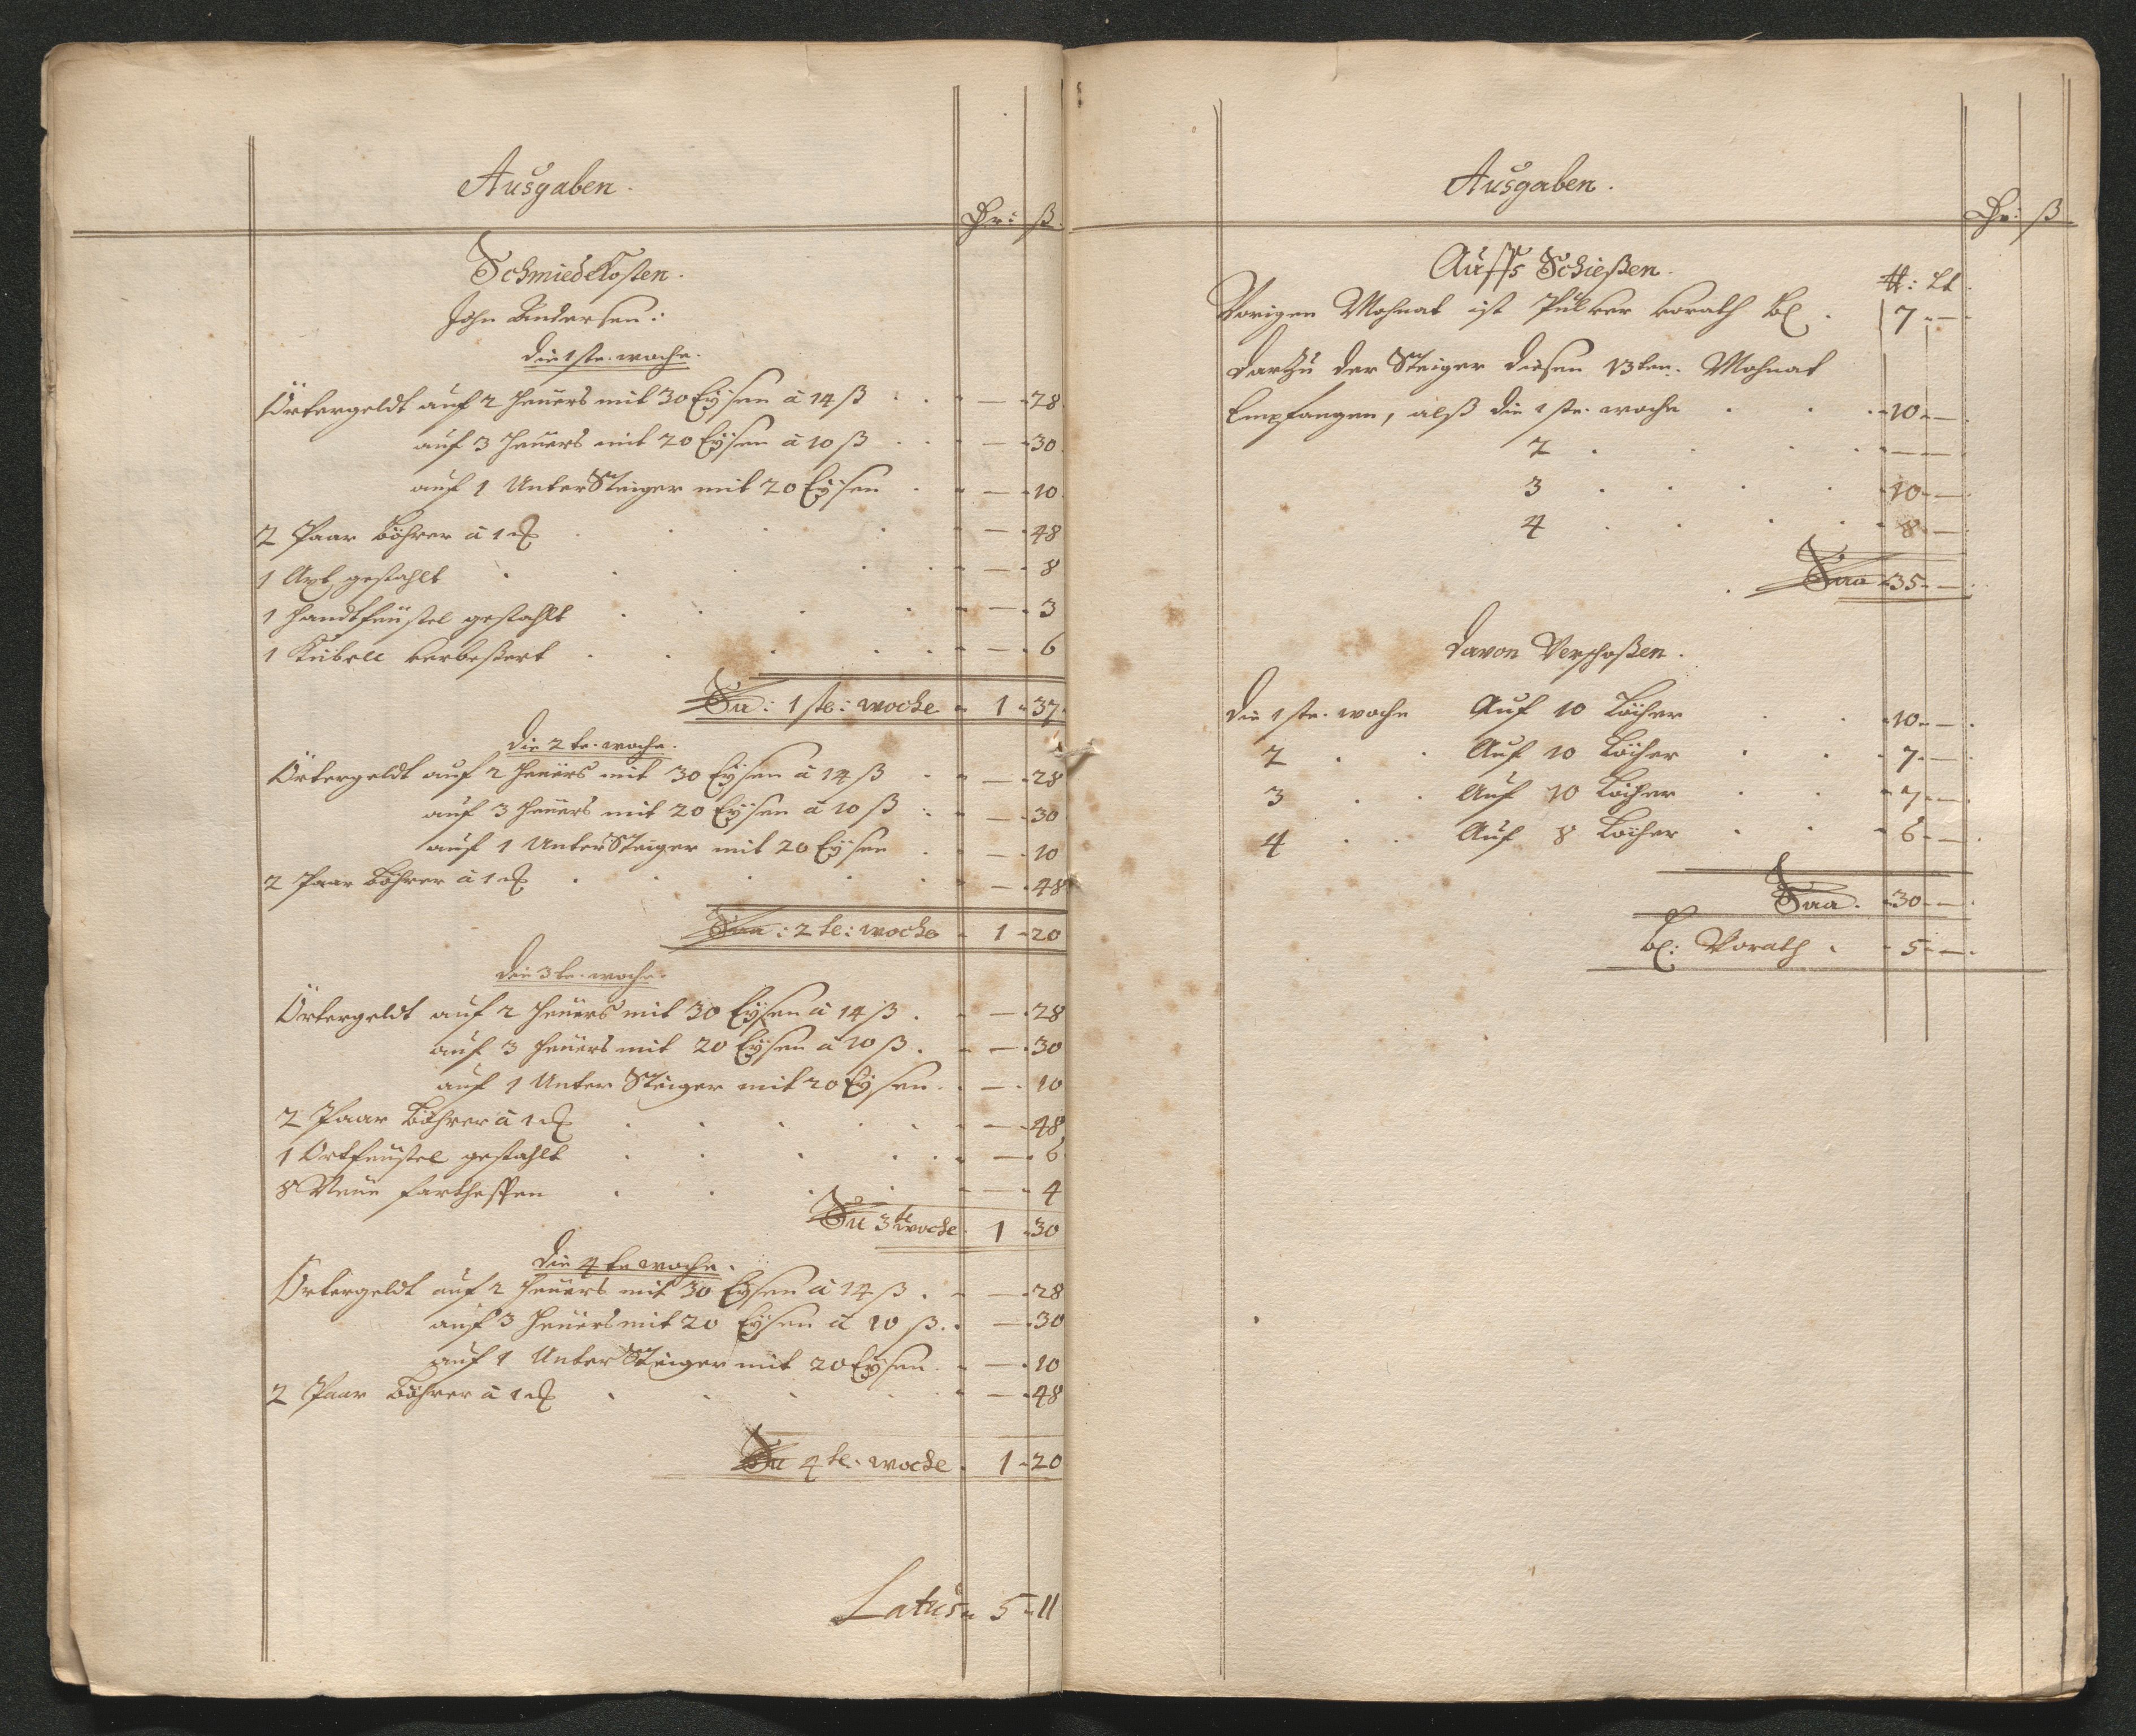 Ausgaben.
Dr: ß.
Schmiedekosten.
John Andersen:
Die 1ste. woche.
Örtergeldt auf 2 Heuers mit 30 Eÿsen à 14 ß — 28
auf 3 Heüers mit 20 Eÿsen à 10 ß — 30
auf 1 UnterSteiger mit 20 Eÿsen — 10
2 Paar Böhrer à 1 — 48
1 Axt gestahlt — 8
1 Handtfeüstel gestahlt — 3
1 Kübell verbeßert — 6
Sa: 1ste: woche 1 37
Die 2te. woche.
Örtergeldt auf 2 Heüers mit 30 Eÿsen à 14 ß — 28
auf 3 Heüers mit 20 Eÿsen à 10 ß — 30
auf 1 UnterSteiger mit 20 Eÿsen — 10
2 Paar Böhrer à 1 — 48
Saa: 2te: woche 1 20
Die 3te. woche.
Örtergeldt auf 2 Heüers mit 30 Eÿsen à 14 ß — 28
auf 3 Heüers mit 20 Eÿsen à 10 ß — 30
auf 1 Unter Steiger mit 20 Eÿsen — 10
2 Paar Böhrer à 1 — 48
1 Ortfeüstel gestahlt — 6
8 Neüe — 4
Sa 3te woche 1 30
Die 4te woche.
Örtergeldt auf 2 Heüers mit 30 Eÿsen à 14 ß — 28
auf 3 Heüers mit 20 Eÿsen à 10 ß — 30
auf 1 UnterSteiger mit 20 Eÿsen — 10
2 Paar Böhrer à 1 — 48
Sa 4te. woche 1 20
Latus 5 11
Ausgaben.
Dr: ß
Auffs Schießen.
℔: Lt
Vorigen Mohnat ist Pulver vorath 7 —
Darzu der Steiger diesen 13ten. Mohnat
Empfangen, alß die 1ste. woche 10 —
2 — —
3 10 —
4 8 —
Saa 35 —
Davon Verschoßen.
Die 1ste. woche Auf 10 Löcher 10 —
2 Auf 10 Löcher 7 —
3 Auf 10 Löcher 7 —
4 Auf 8 Löcher 6 —
Saa. 30 —
Vorath 5 —